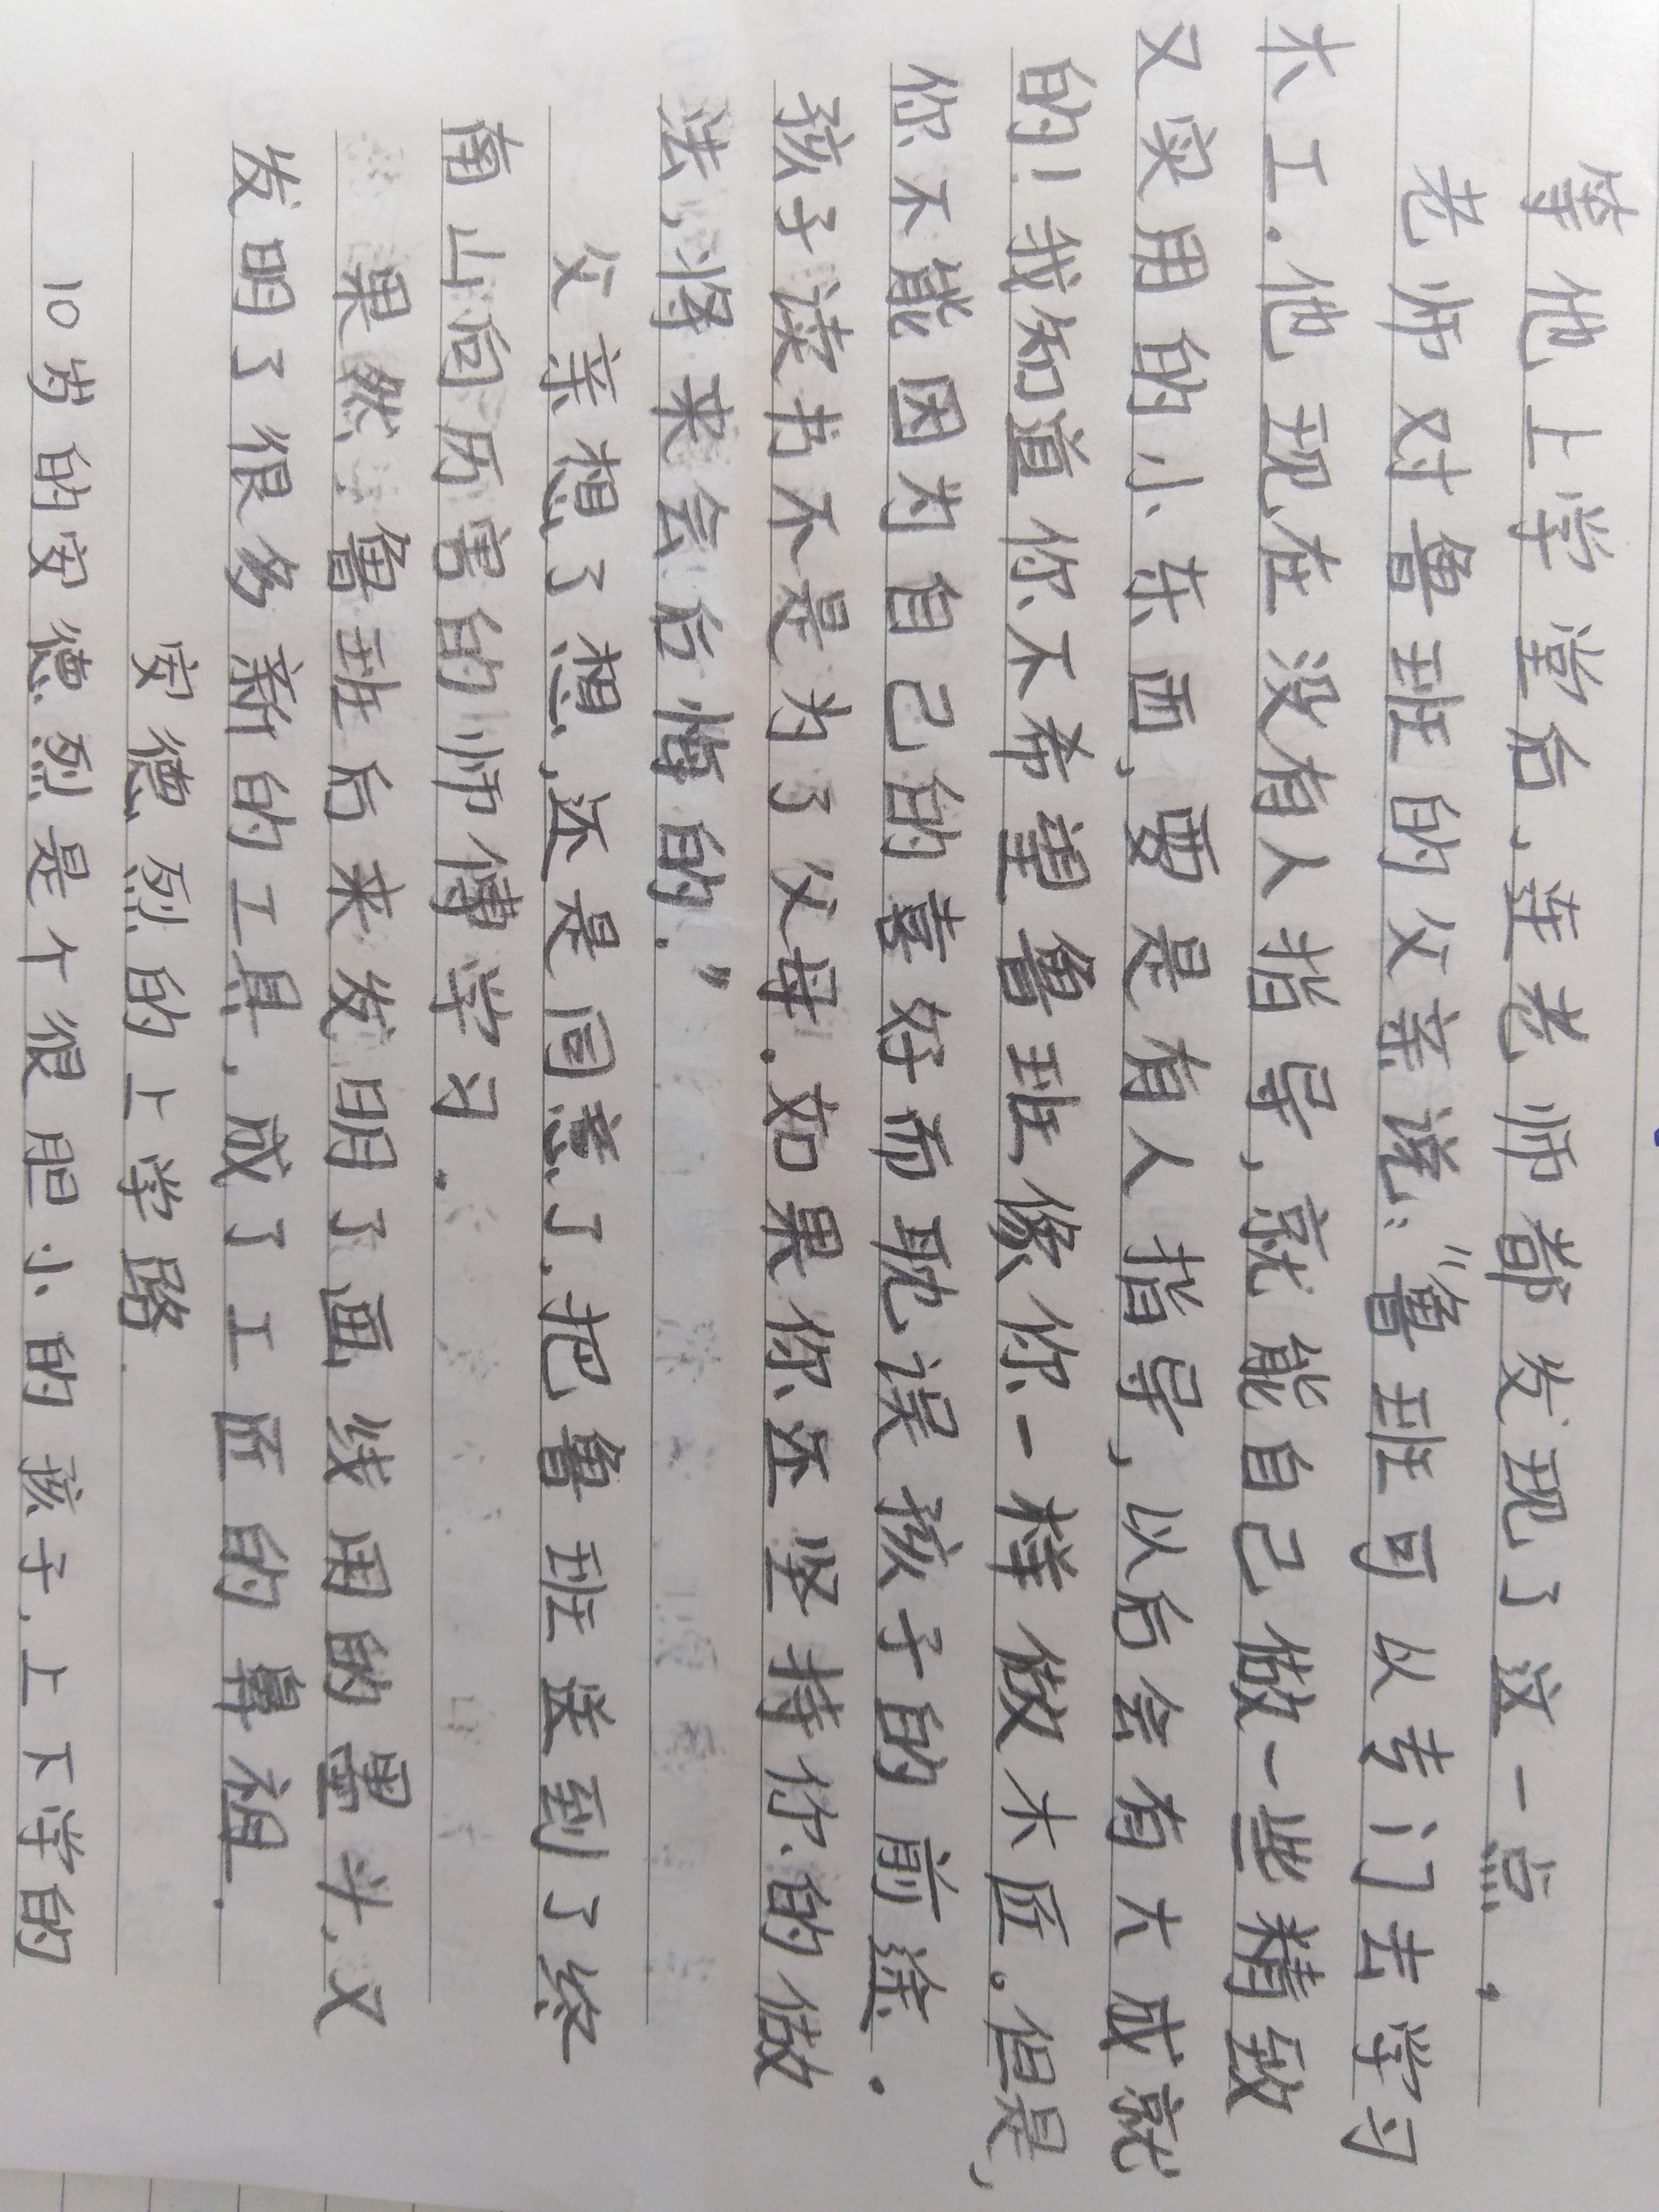 等他上学堂后,连老师都发现了这一点.
老师对鲁班的父亲说:“鲁班可以专门去学习
木工.他现在没有人指导,就能自己做一些精致
又实用的小东西,要是有人指导,以后会有大成就
的!我知道你不希望鲁班像你一样做木匠。但是,
你不能因为自己的喜好而耽误孩子的前途.
孩子读书不是为了父母.如果你还坚持你的做
法,将来会后悔的.”
父亲想了想,还是同意了.把鲁班送到了终
南山向厉害的师傅学习.
果然,鲁班后来发明了画线用的墨斗,又
发明了很多新的工具,成了工匠的鼻祖.
安德烈的上学路
10岁的安德烈是个很胆小的孩子.上下学的